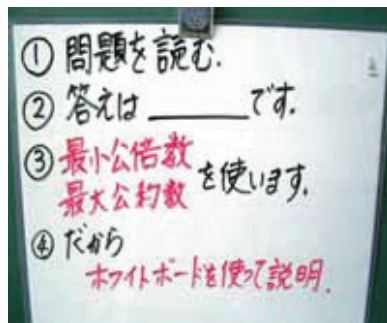 ① 問題を読む.
② 答えは______です.
③ 最小公倍数
最大公約数 を使います.
④ だから
ホワイトボードを使って説明.